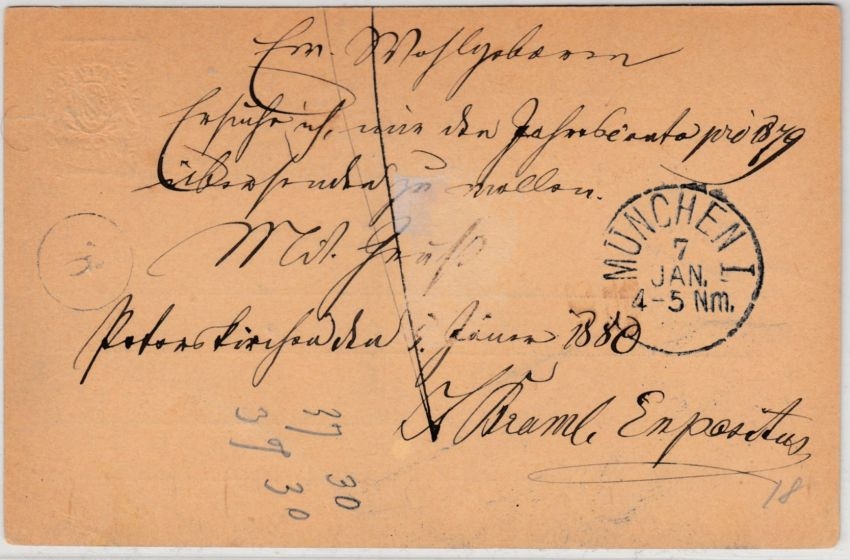 Ew. Wohlgeboren
Ersuche ich, mir den Jahresconto pro 1879
übersenden zu wollen.
Mit Gruß
Peterskirchen den Jäner 1880
Braml, Expositus
MÜNCHEN I
7
JAN.
4-5 Nm.
37 30
39 30
18